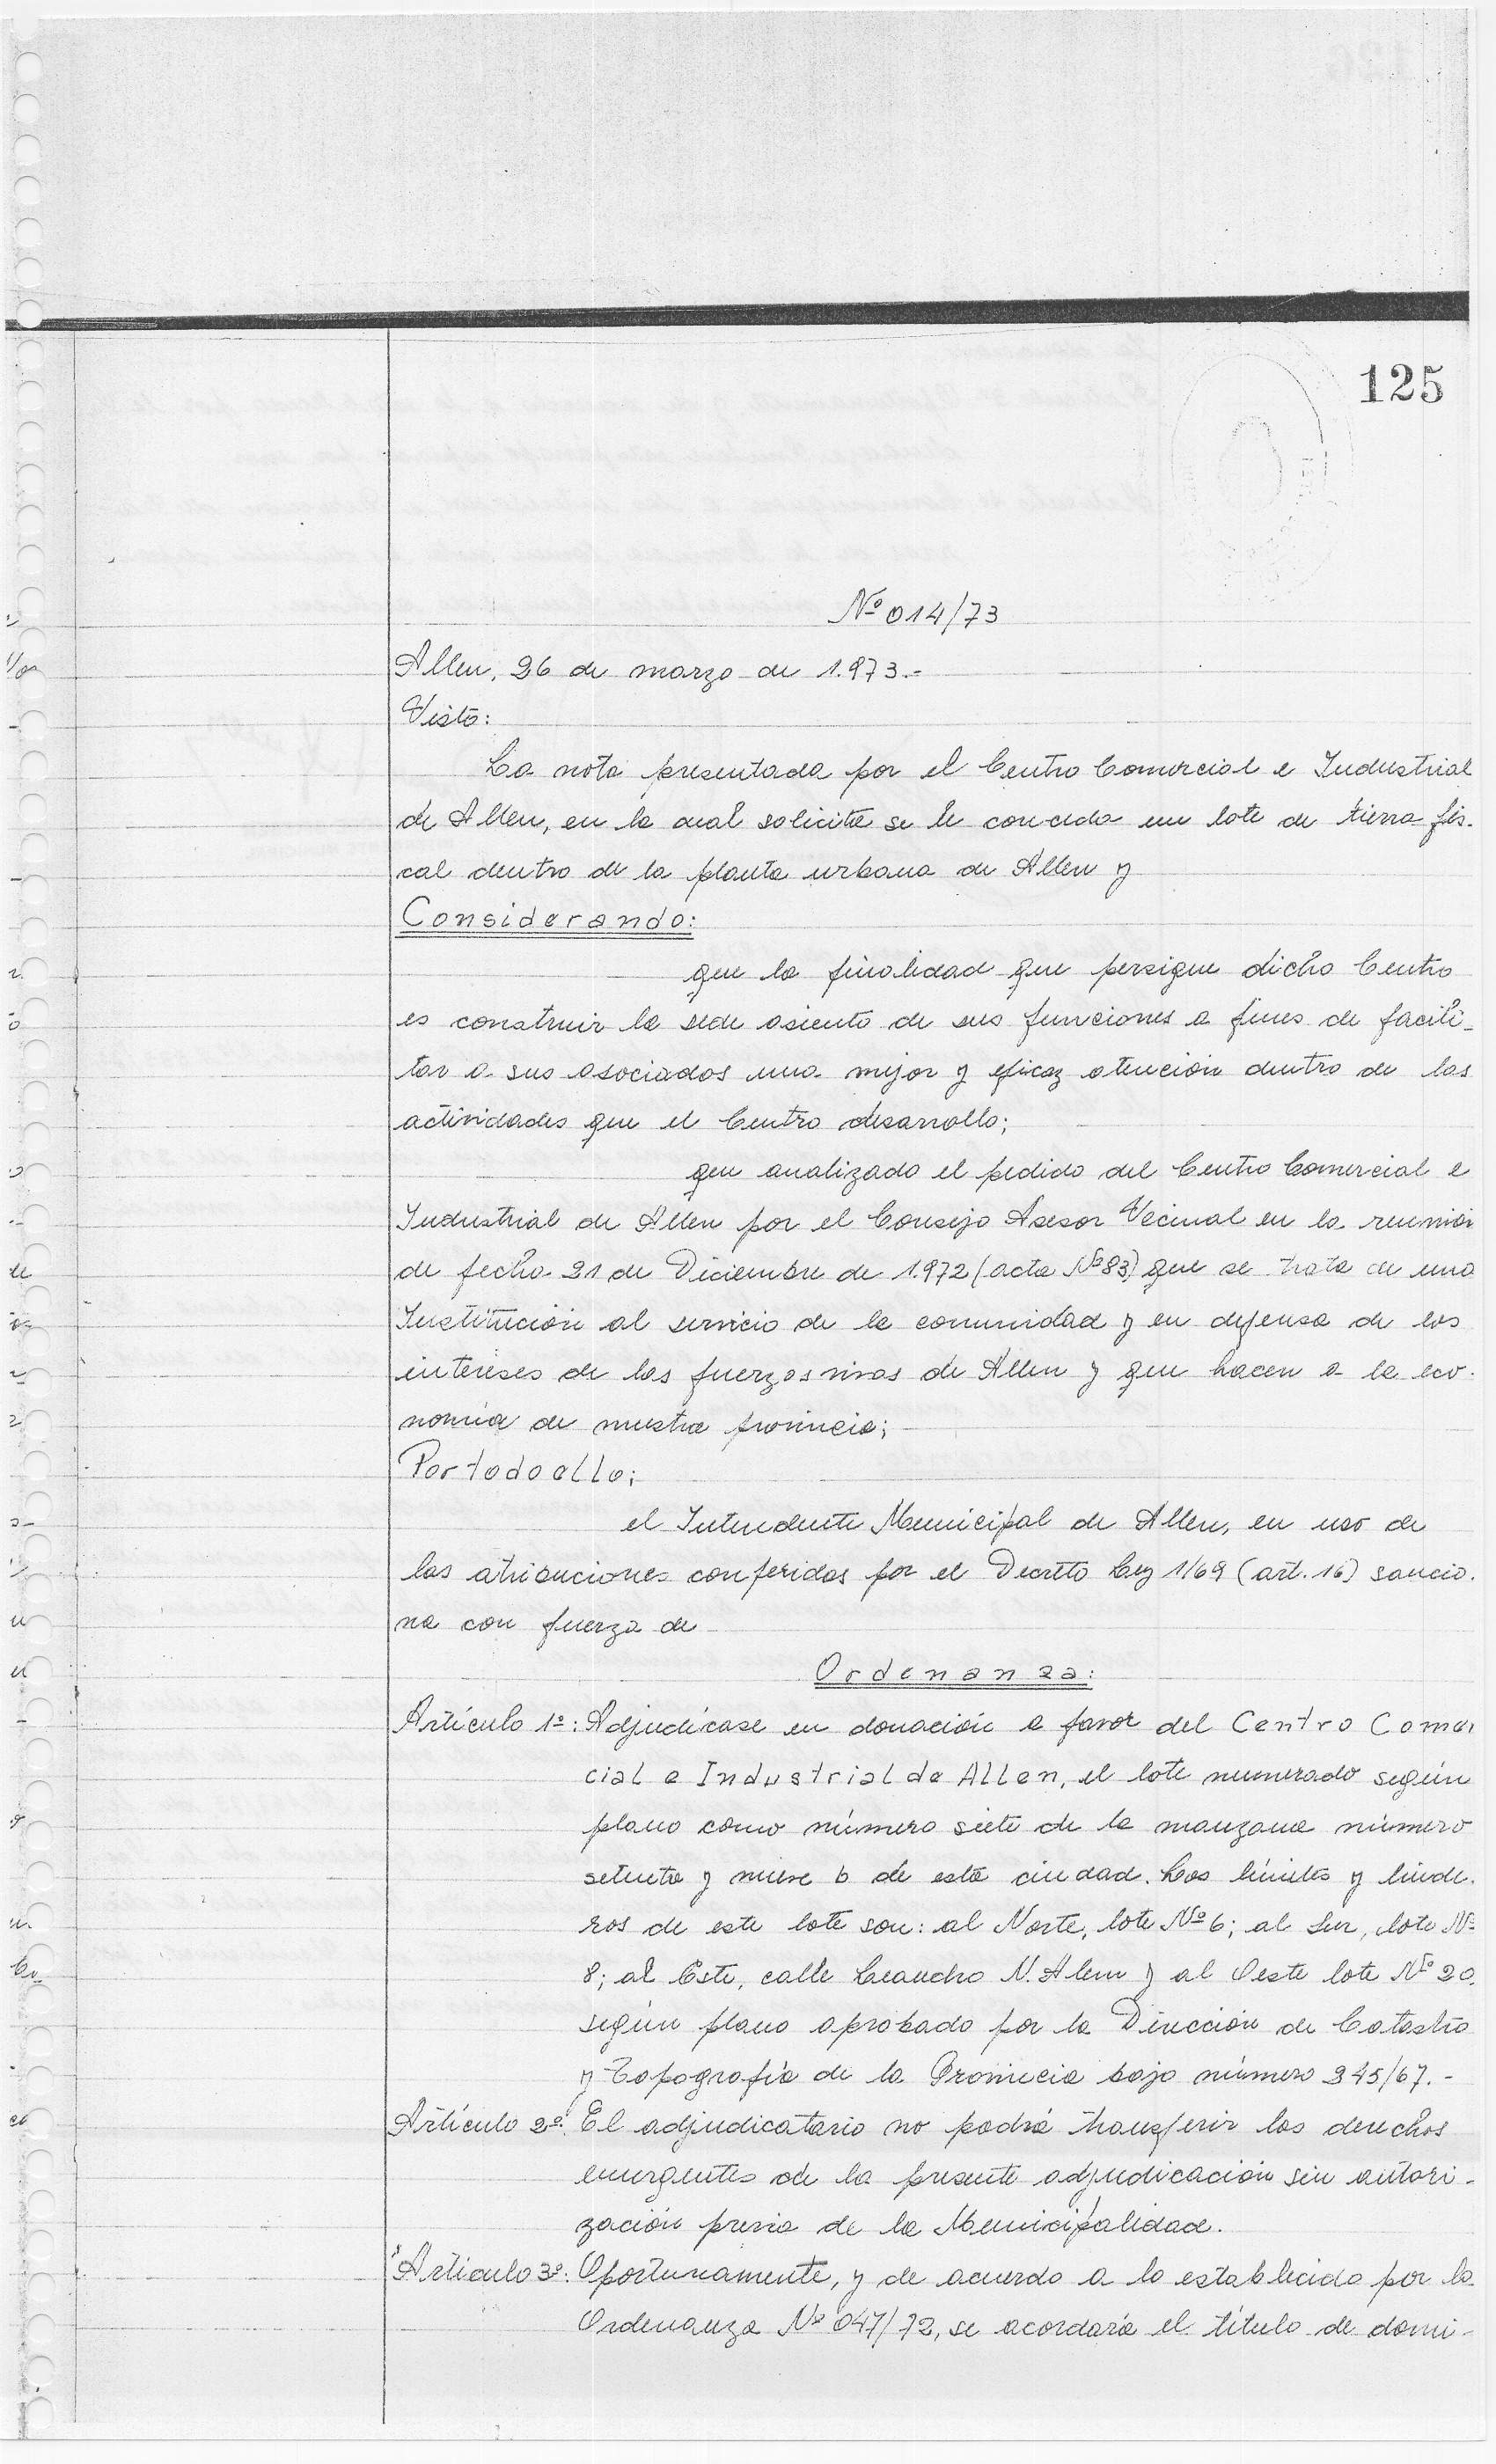 125
Nº 014/73
Allen, 26 de marzo de 1.973.-
Visto:
La nota presentada por el Centro Comercial e Industrial
de Allen, en la cual solicita se le conceda un lote de tierra fis-
cal dentro de la planta urbana de Allen y
Considerando:
que la finalidad que persigue dicho Centro
es construir la sede asiento de sus funciones a fines de facili-
tar a sus asociados una mejor y eficaz atención dentro de las
actividades que el Centro desarrolla;
que analizado el pedido del Centro Comercial e
Industrial de Allen por el Consejo Asesor Vecinal en la reunión
de fecha 21 de Diciembre de 1.972 (acta Nº 83) que se trata de una
Institución al servicio de la comunidad y en defensa de los
intereses de las fuerzas vivas de Allen y que hacen a la eco-
nomía de nuestra provincia;
Por todo ello;
el Intendente Municipal de Allen, en uso de
las atribuciones conferidas por el Decreto Ley 1/69 (art. 16) sancio-
na con fuerza de
Ordenanza:
Artículo 1º: Adjudícase en donación a favor del Centro Comer
cial e Industrial de Allen, el lote numerado según
plano como número siete de la manzana número
setenta y nueve b de esta ciudad. Los límites y linde-
ros de este lote son: al Norte, lote Nº 6; al Sur, lote Nº
8; al Este, calle Leandro N. Alem y al Oeste lote Nº 20.
según plano aprobado por la Dirección de Catastro
y Topografía de la Provincia bajo número 345/67.-
Artículo 2º: El adjudicatario no podrá transferir los derechos
emergentes de la presente adjudicación sin autori-
zación previa de la Municipalidad.
Artículo 3º: Oportunamente, y de acuerdo a lo establecido por la
Ordenanza Nº 047/72, se acordará el título de domi-